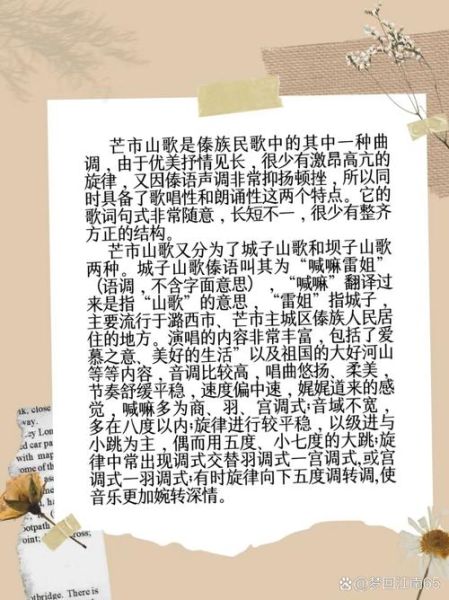 芒市山歌是傣族民歌中的其中一种曲
调，由于优美抒情见长，很少有激昂高亢的
旋律，又因傣语声调非常抑扬顿挫，所以同
时具备了歌唱性和朗诵性这两个特点。它的
歌词句式非常随意，长短不一，很少有整齐
方正的结构。
芒市山歌又分为了城子山歌和坝子山歌
两种。城子山歌傣语叫其为“喊嘛雷姐”
（语调，不含字面意思），“喊嘛”翻译过
来是指“山歌”的意思，“雷姐”指城子，
主要流行于潞西市、芒市主城区傣族人民居
住的地方。演唱的内容非常丰富，包括了爱
慕之意、美好的生活”以及祖国的大好河山
等等内容，音调比较高，唱曲悠扬、柔美，
节奏舒缓平稳，速度偏中速，娓娓道来的感
觉，喊嘛多为商、羽、宫调式;音域不宽，
多在八度以内;旋律进行较平稳，以级进与
小跳为主，偶而用五度、小七度的大跳;旋
律中常出现调式交替羽调式一宫调式,或宫
调式一羽调式;有时旋律向下五度调转调,使
音乐更加婉转深情。
uk, close
way.
ey Lon
d car pa
with map
ome of th
ootpath
oint;
ross,
otbridge. There is
@梦回江南65